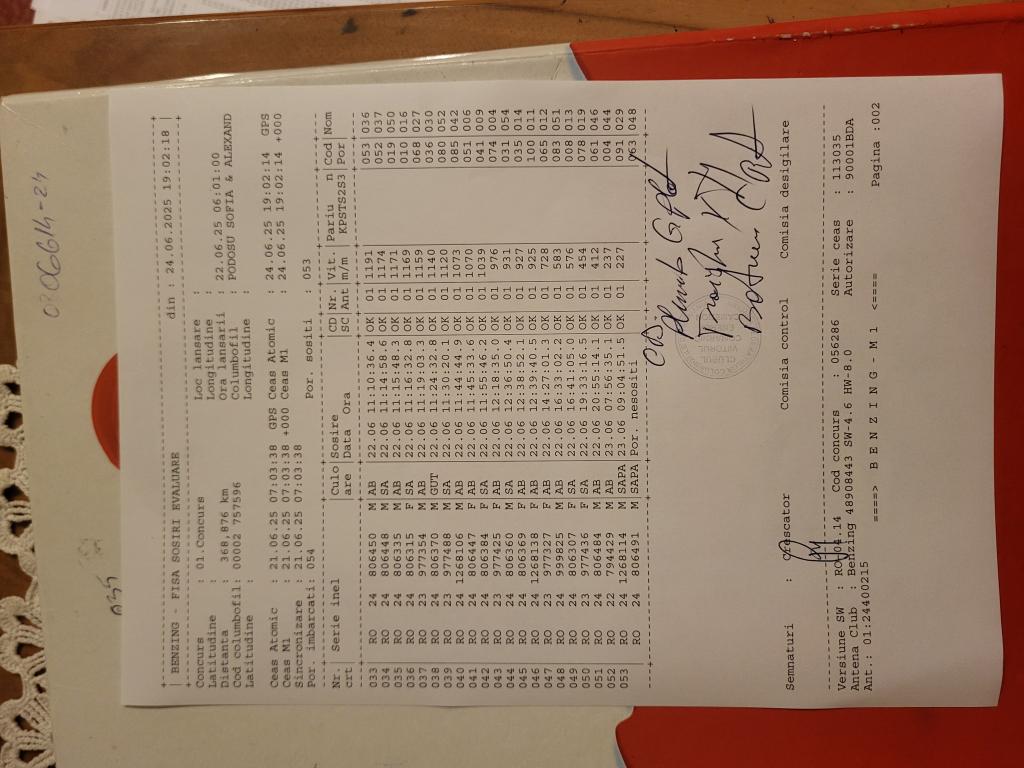 030614-24
035
BENZING - FISA SOSIRI EVALUARE din : 24.06.2025 19:02:18
Concurs : 01.Concurs Loc lansare :
Latitudine : Longitudine :
Distanta : 368,876 km Ora lansarii : 22.06.25 06:01:00
Cod columbofil: 00002 757596 Columbofil : PODOSU SOFIA & ALEXAND
Latitudine : Longitudine :
Ceas Atomic : 21.06.25 07:03:38 GPS Ceas Atomic : 24.06.25 19:02:14 GPS
Ceas M1 : 21.06.25 07:03:38 +000 Ceas M1 : 24.06.25 19:02:14 +000
Sincronizare : 21.06.25 07:03:38
Por. imbarcati: 054 Por. sositi : 053
Nr. Serie inel Culo Sosire CD Nr. Vit. Pariu n Cod Nom
crt. are Data Ora SC Ant m/m KPSTS2S3 Por
033 RO 24 806450 M AB 22.06 11:10:36.4 OK 01 1191 053 036
034 RO 24 806448 M SA 22.06 11:14:58.6 OK 01 1174 052 037
035 RO 24 806335 M AB 22.06 11:15:48.3 OK 01 1171 019 050
036 RO 24 806315 F SA 22.06 11:16:32.8 OK 01 1169 010 016
037 RO 23 977354 M AB 22.06 11:19:03.2 OK 01 1159 068 027
038 RO 24 806370 M GUT 22.06 11:24:32.8 OK 01 1140 036 030
039 RO 23 977488 M SA 22.06 11:30:20.1 OK 01 1120 080 052
040 RO 24 1268106 M AB 22.06 11:44:44.9 OK 01 1073 085 042
041 RO 24 806447 F AB 22.06 11:45:33.6 OK 01 1070 051 006
042 RO 24 806384 F SA 22.06 11:55:46.2 OK 01 1039 041 009
043 RO 23 977425 F AB 22.06 12:18:35.0 OK 01 976 074 004
044 RO 24 806360 M SA 22.06 12:36:50.4 OK 01 931 031 054
045 RO 24 806369 F AB 22.06 12:38:52.1 OK 01 927 035 014
046 RO 24 1268138 F AB 22.06 12:39:40.3 OK 01 925 100 011
047 RO 23 977327 F AB 22.06 14:27:31.3 OK 01 728 065 012
048 RO 24 999825 M AB 22.06 16:33:02.2 OK 01 583 083 051
049 RO 24 806307 F SA 22.06 16:41:05.0 OK 01 576 008 013
050 RO 23 977436 F SA 22.06 19:33:16.5 OK 01 454 078 019
051 RO 24 806484 M AB 22.06 20:55:14.1 OK 01 412 061 046
052 RO 22 794429 M AB 23.06 07:56:35.1 OK 01 237 004 044
053 RO 24 1268114 M SAPA 23.06 09:04:51.5 OK 01 227 091 029
RO 24 806491 M SAPA Por. nesositi 063 048
Semnaturi : Crescator Comisia control Comisia desigilare
Versiune SW : RO-04.14 Cod concurs : 056286 Serie ceas : 113035
Antena Club : Benzing 48908443 SW-4.6 HW-8.0 Autorizare : 90001BDA
Ant.: 01:24400215
====> B E N Z I N G - M 1 <==== Pagina :002